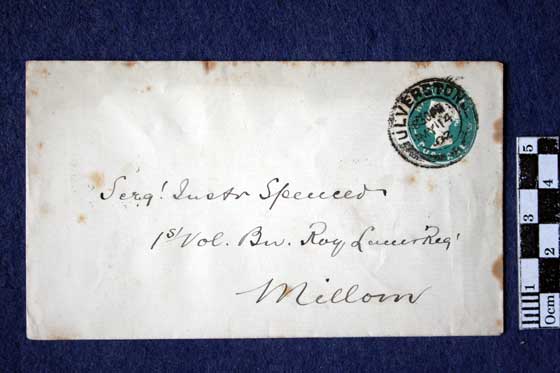 ULVERSTON
MY 14
Sergt. Instr Spencer
1st Vol. Bn. Roy Lancr Regt
Millom
0cm 1 2 3 4 5